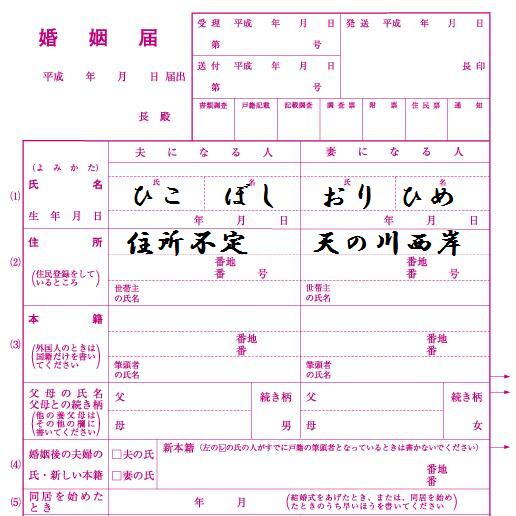 婚姻届
平成　年　月　日 届出
長 殿
受理 平成　年　月　日
第　号
送付 平成　年　月　日
第　号
発送 平成　年　月　日
長印
書類調査 戸籍記載 記載調査 調査票 附票 住民票 通知
夫になる人 妻になる人
(1)
(よみかた)
氏名
氏 名 氏 名
ひこ ぼし おり ひめ
生年月日
年　月　日 年　月　日
(2)
住所
住所不定 天の川西岸
(住民登録をして
いるところ)
番地 番地
番　号 番　号
世帯主
の氏名
世帯主
の氏名
(3)
本籍
(外国人のときは
国籍だけを書い
てください)
番地 番地
番 番
筆頭者
の氏名
筆頭者
の氏名
父母の氏名
父母との続き柄
(他の養父母は
その他の欄に
書いてください)
父 続き柄 父 続き柄
母 男 母 女
(4)
婚姻後の夫婦の
氏・新しい本籍
□夫の氏
□妻の氏
新本籍 (左の☑の氏の人がすでに戸籍の筆頭者となっているときは書かないでください)
番地
番
(5)
同居を始めた
とき
年　月
(結婚式をあげたとき、または、同居を始め
たときのうち早いほうを書いてください)